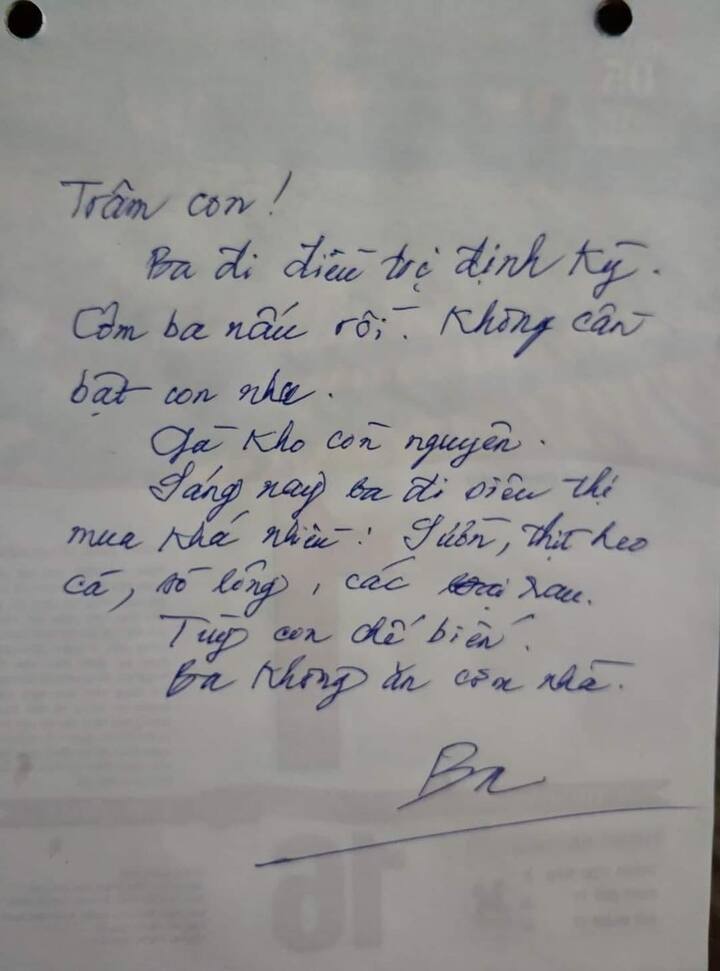 Trâm con!
Ba đi điều trị định kỳ.
Cơm ba nấu rồi. Không cần
bật con nha.
Gà kho còn nguyên.
Sáng nay ba đi siêu thị
mua khá nhiều: Sườn, thịt heo
cá, sò lông, các loại rau.
Tùy con chế biến.
Ba không ăn cơm nhà.
Ba
16